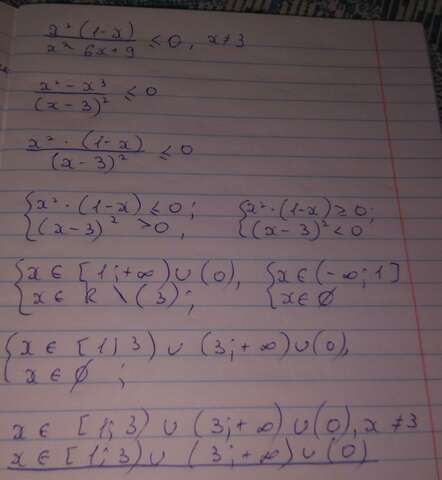 x² (1-x) / x² - 6x+9 ≤ 0, x≠3
x² - x³ / (x-3)² ≤ 0
x² · (1-x) / (x-3)² ≤ 0
{ x² · (1-x) ≤ 0; { x² · (1-x) ≥ 0;
{ (x-3)² > 0, { (x-3)² < 0
{ x ∈ [1;+∞) ∪ (0), { x ∈ (-∞; 1]
{ x ∈ R \ (3); { x ∈ ∅
{ x ∈ [1; 3) ∪ (3;+∞) ∪ (0),
{ x ∈ ∅ ;
x ∈ [1; 3) ∪ (3;+∞) ∪ (0), x ≠ 3
x ∈ [1; 3) ∪ (3;+∞) ∪ (0)